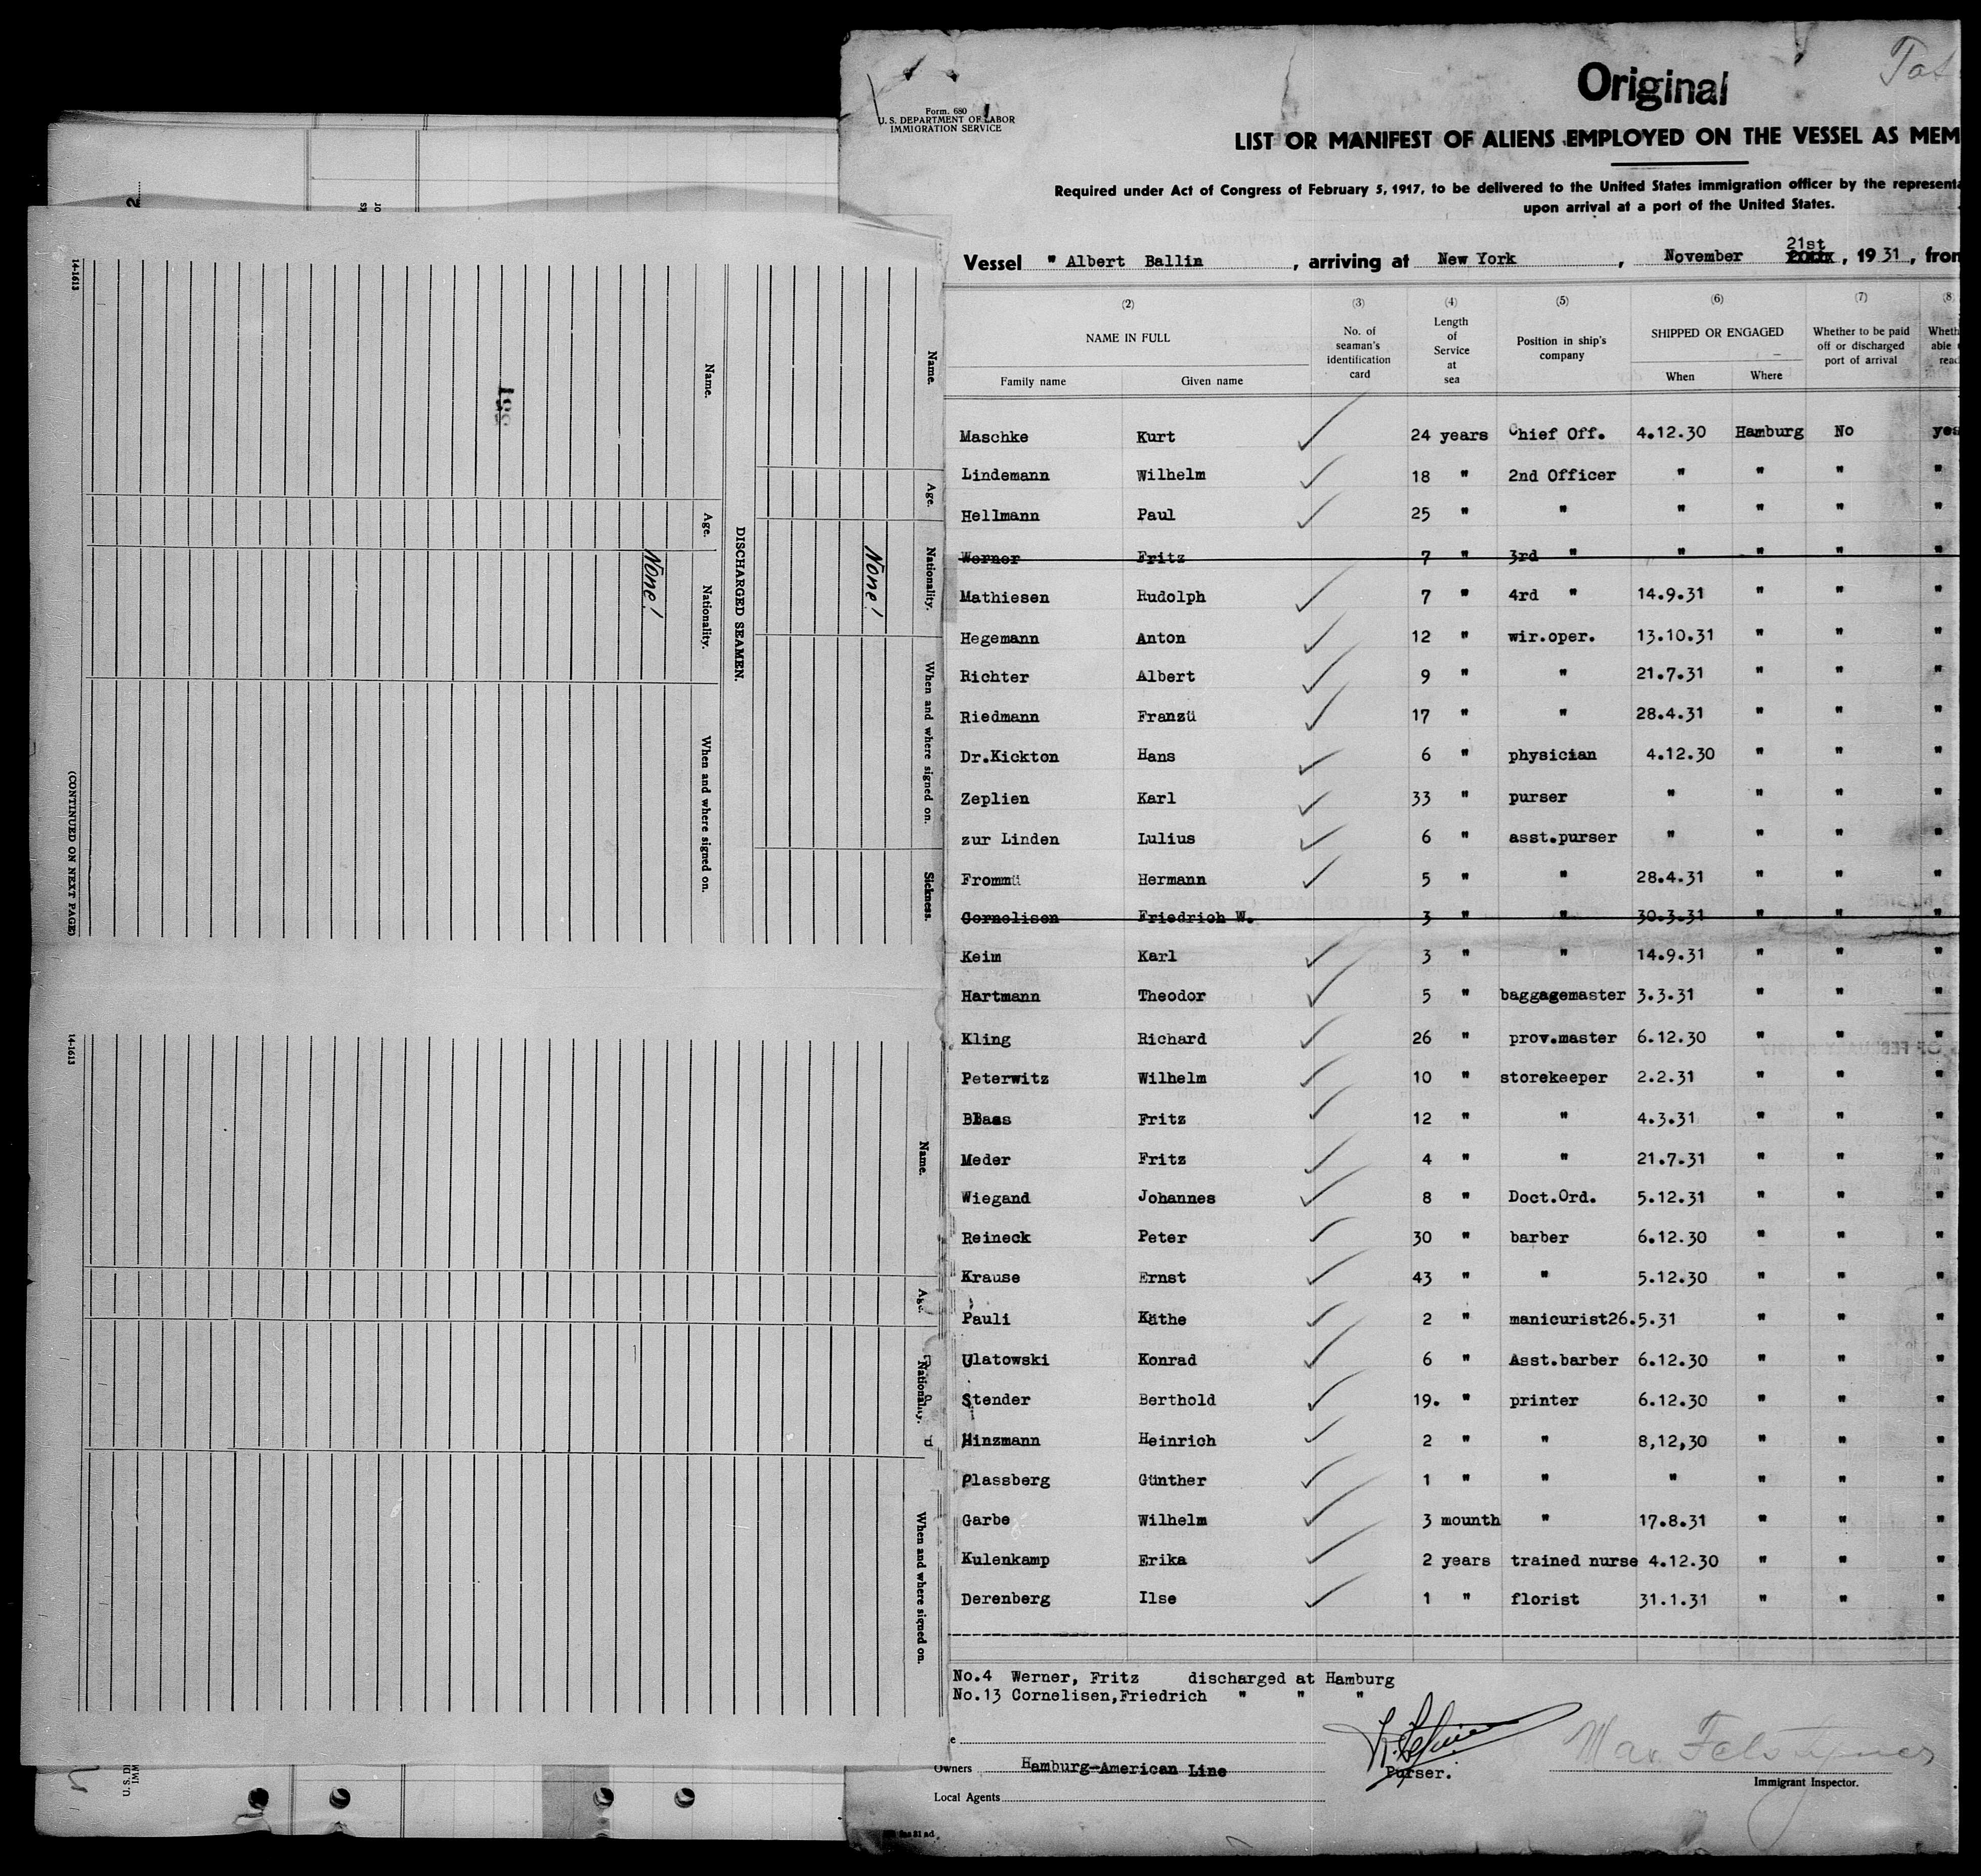 Original
Form. 680
U. S. DEPARTMENT OF LABOR
IMMIGRATION SERVICE
LIST OR MANIFEST OF ALIENS EMPLOYED ON THE VESSEL AS MEM
Required under Act of Congress of February 5, 1917, to be delivered to the United States immigration officer by the representa
upon arrival at a port of the United States.
21st
Vessel " Albert Ballin , arriving at New York , November , 19 31 , from
(2) (3) (4) (5) (6) (7) (8)
NAME IN FULL No. of seaman's identification card Length of Service at sea Position in ship's company SHIPPED OR ENGAGED Whether to be paid off or discharged port of arrival Wheth able read
Family name Given name When Where
Maschke Kurt 24 years Chief Off. 4.12.30 Hamburg No yes
Lindemann Wilhelm 18 " 2nd Officer " " " "
Hellmann Paul 25 " " " " " "
Werner Fritz 7 " 3rd " " " " "
Mathiesen Rudolph 7 " 4rd " 14.9.31 " " "
Hegemann Anton 12 " wir.oper. 13.10.31 " " "
Richter Albert 9 " " 21.7.31 " " "
Riedmann Franzü 17 " " 28.4.31 " " "
Dr.Kickton Hans 6 " physician 4.12.30 " " "
Zeplien Karl 33 " purser " " " "
zur Linden Lulius 6 " asst.purser " " " "
Frommü Hermann 5 " " 28.4.31 " " "
Cornelisen Friedrich W. 3 " " 30.3.31 " " "
Keim Karl 3 " " 14.9.31 " " "
Hartmann Theodor 5 " baggagemaster 3.3.31 " " "
Kling Richard 26 " prov.master 6.12.30 " " "
Peterwitz Wilhelm 10 " storekeeper 2.2.31 " " "
Fritz 12 " " 4.3.31 " " "
Meder Fritz 4 " " 21.7.31 " " "
Wiegand Johannes 8 " Doct.Ord. 5.12.31 " " "
Reineck Peter 30 " barber 6.12.30 " " "
Krause Ernst 43 " " 5.12.30 " " "
Pauli Käthe 2 " manicurist26.5.31 " " "
Ulatowski Konrad 6 " Asst.barber 6.12.30 " " "
Stender Berthold 19. " printer 6.12.30 " " "
Hinzmann Heinrich 2 " " 8,12,30 " " "
Plassberg Günther 1 " " " " " "
Garbe Wilhelm 3 mounth " 17.8.31 " " "
Kulenkamp Erika 2 years trained nurse 4.12.30 " " "
Derenberg Ilse 1 " florist 31.1.31 " " "
No.4 Werner, Fritz discharged at Hamburg
No.13 Cornelisen,Friedrich " " "
Owners Hamburg-American Line
Purser.
Immigrant Inspector.
Local Agents
Name. Age. Nationality. When and where signed on. Sickness.
None!
DISCHARGED SEAMEN.
Name. Age. Nationality. When and where signed on.
None!
14-1613
(CONTINUED ON NEXT PAGE)
Name. Age. Nationality. When and where signed on.
14-1613